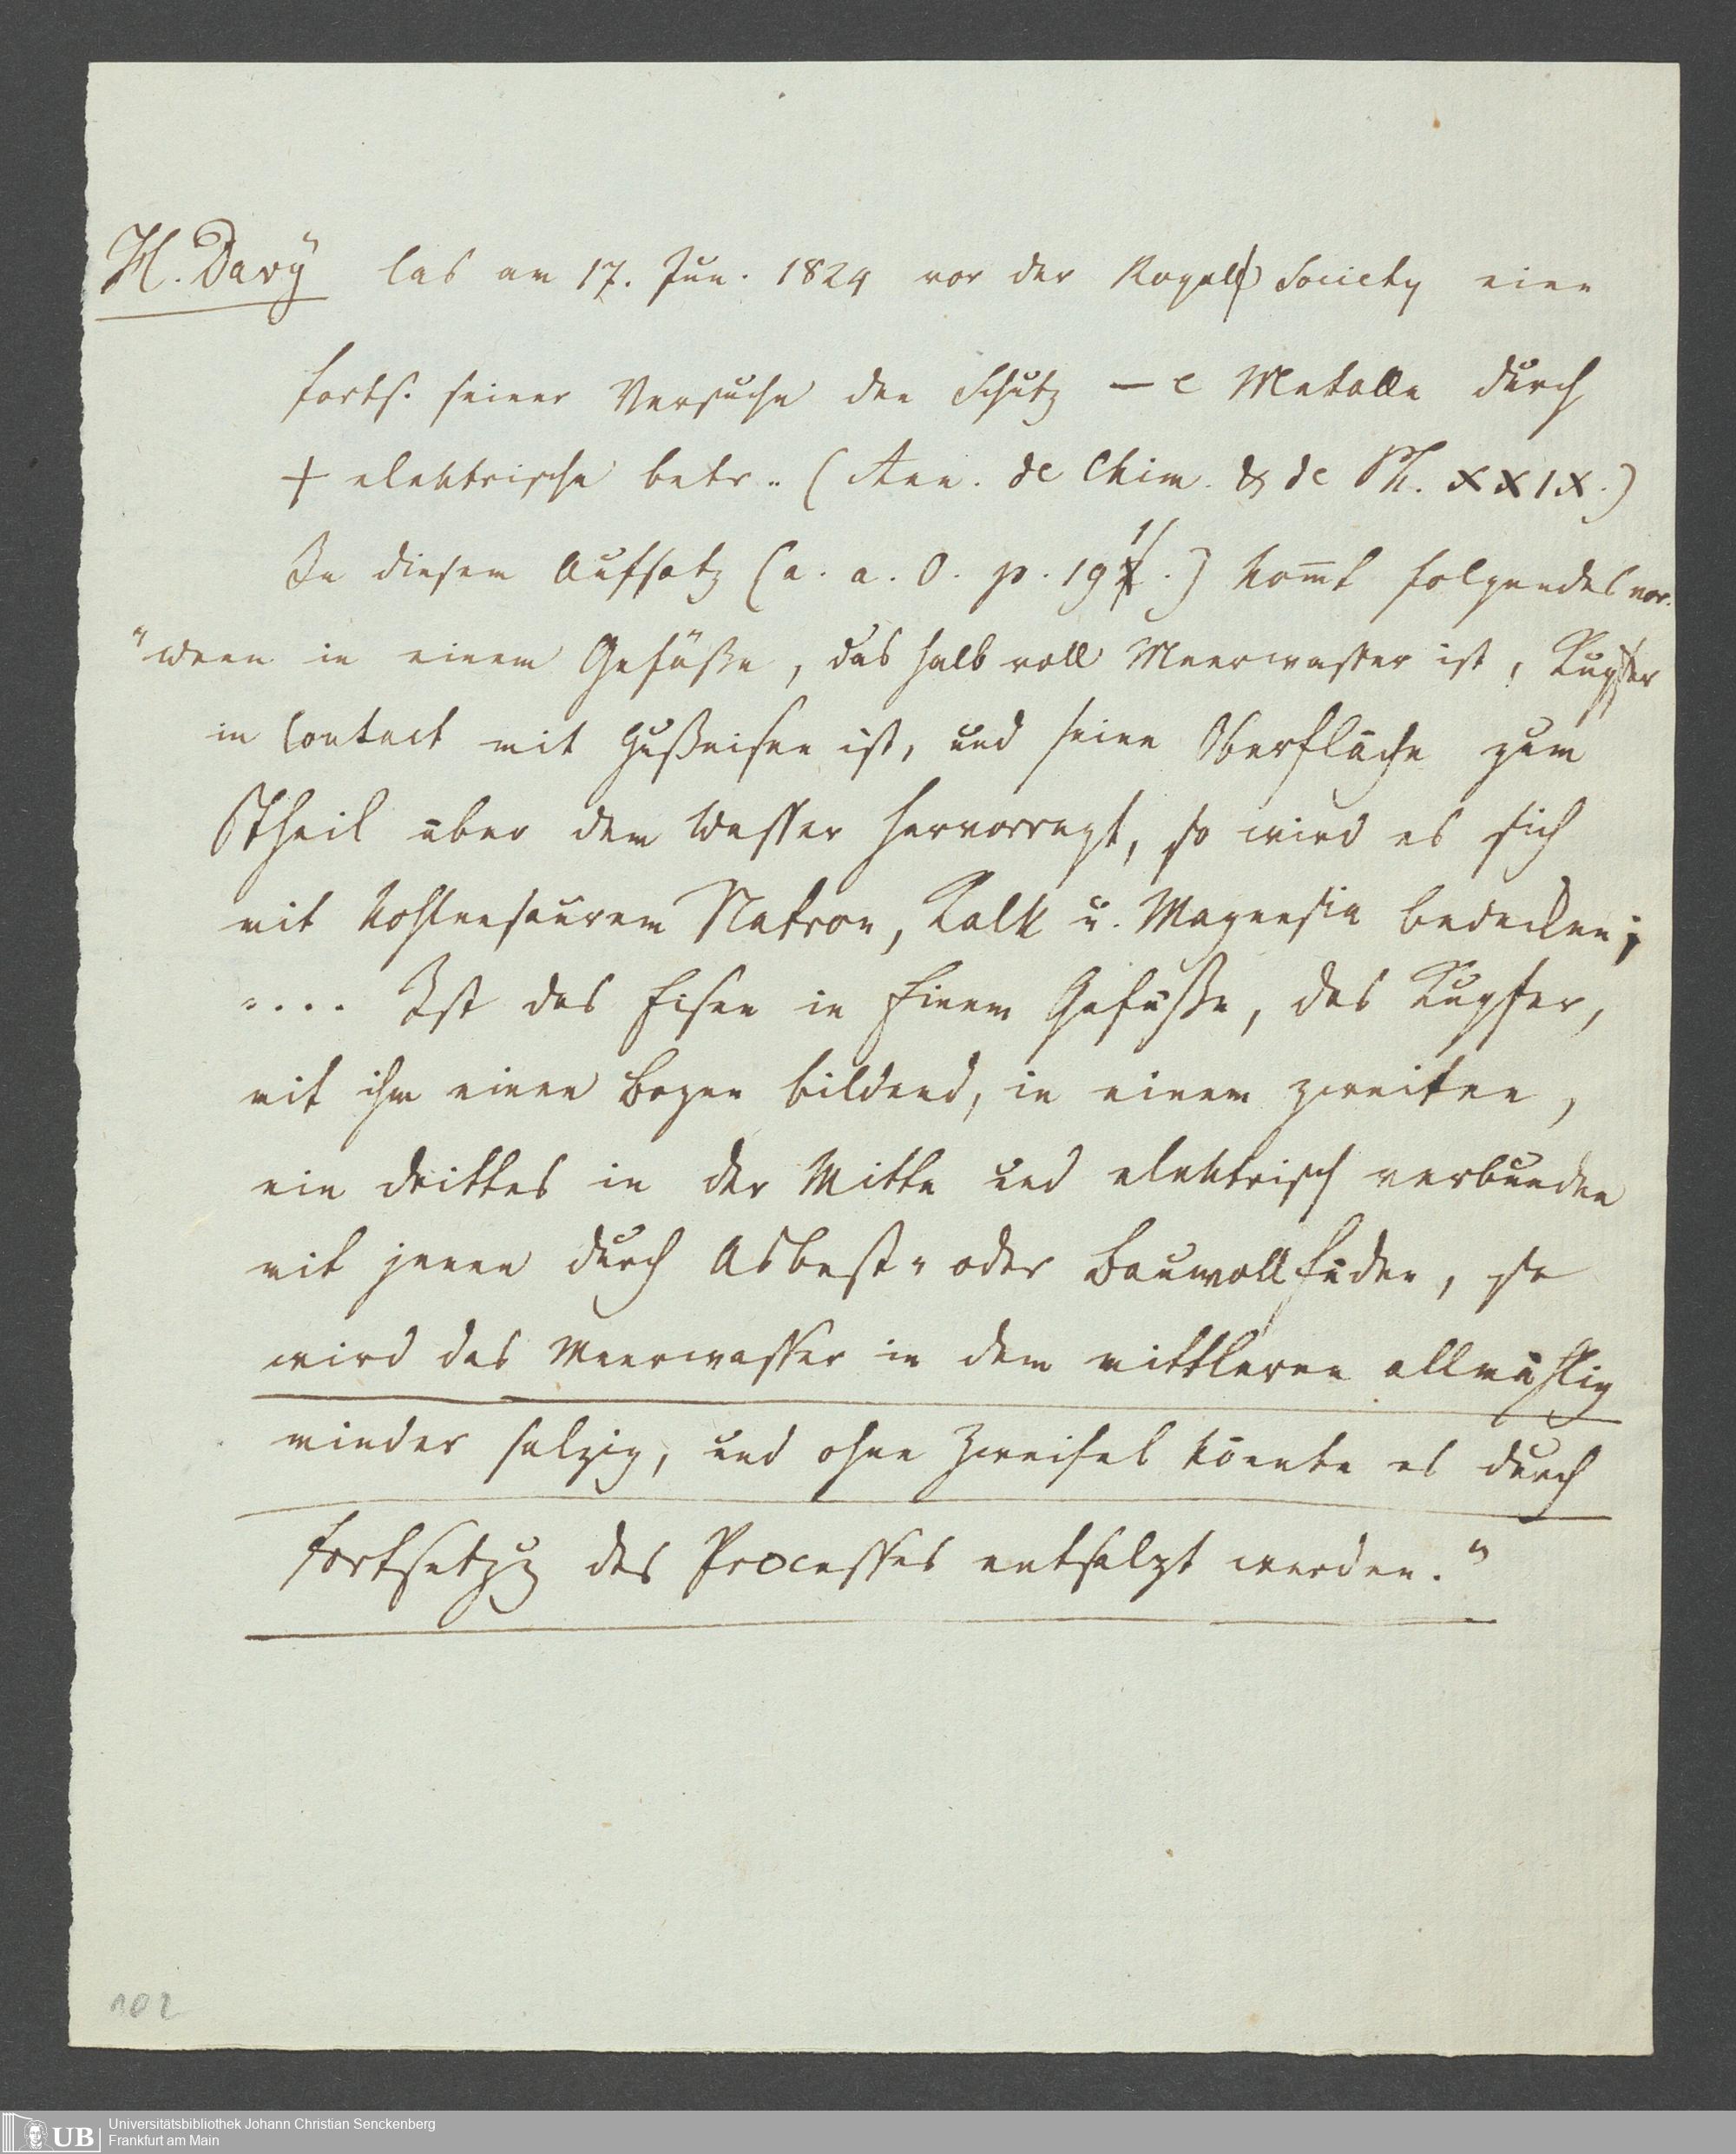 H. Davÿ las am 17. Jun. 1824 vor der Royal Society eine
Forts. seiner Versuche den Schutz — e Metalle durch
+ elektrische betr.. (Ann. de Chim. & de Ph. XXIX.)
In diesem Aufsatz (a. a. O. p. 191.) kom̅t folgendes vor.
"Wenn in einem Gefäße, das halb voll Meerwasser ist, Kupfer
in Contact mit Gußeisen ist, und seine Oberfläche zum
Theil über dem Wasser hervorragt, so wird es sich
mit kohlensaurem Natron, Kalk u. Magnesia bedecken;
.... Ist das Eisen in Einem Gefäße, das Kupfer,
mit ihm einen Bogen bildend, in einem zweiten,
ein drittes in der Mitte und elektrisch verbunden
mit jenen durch Asbest- oder Bauwollfäden, so
wird das Meerwasser in dem mittleren allmählig
minder salzig, und ohne Zweifel könnte es durch
Fortsetzg des Processes entsalzt werden."
102
UB Universitätsbibliothek Johann Christian Senckenberg
Frankfurt am Main